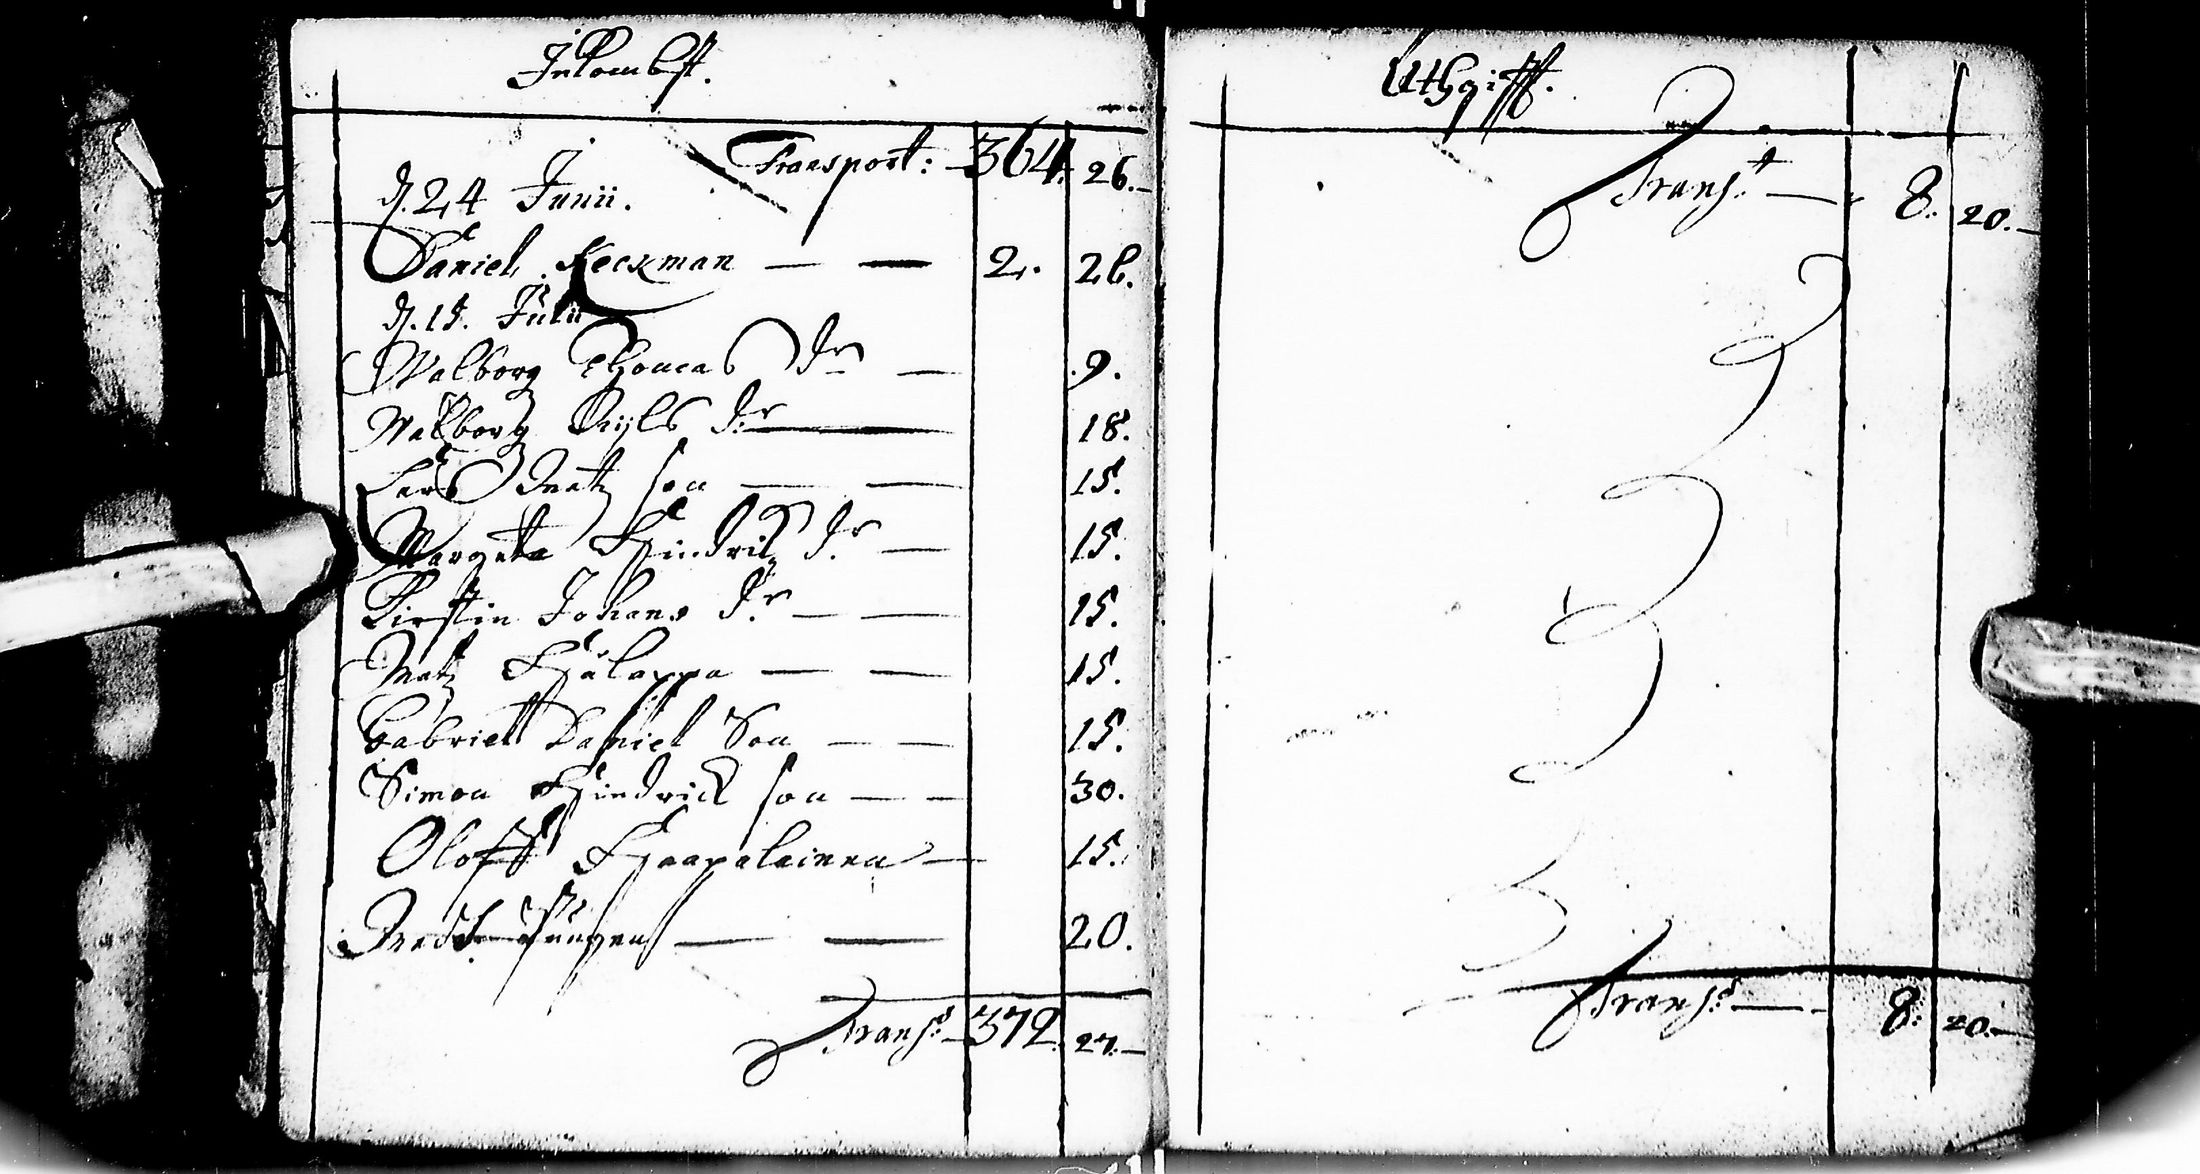 Inkombst.
Transport: 364. 26.
d. 24 Junii.
Daniel Keckman 2. 26.
d. 15. Julii
Walborg Thomas dr 9.
Walborg Nijls dr 18.
Lars Matz son 15.
Margeta Hindrichz dr 15.
Kirstin Johans dr 15.
Matz Hälappa 15.
Gabriel Daniel Son 15.
Simon Hindrick son 30.
Oloff Haapalainen 15.
20.
Transp. 372. 27.
Uthgifft.
Transpt 8. 20.
Transp. 8. 20.